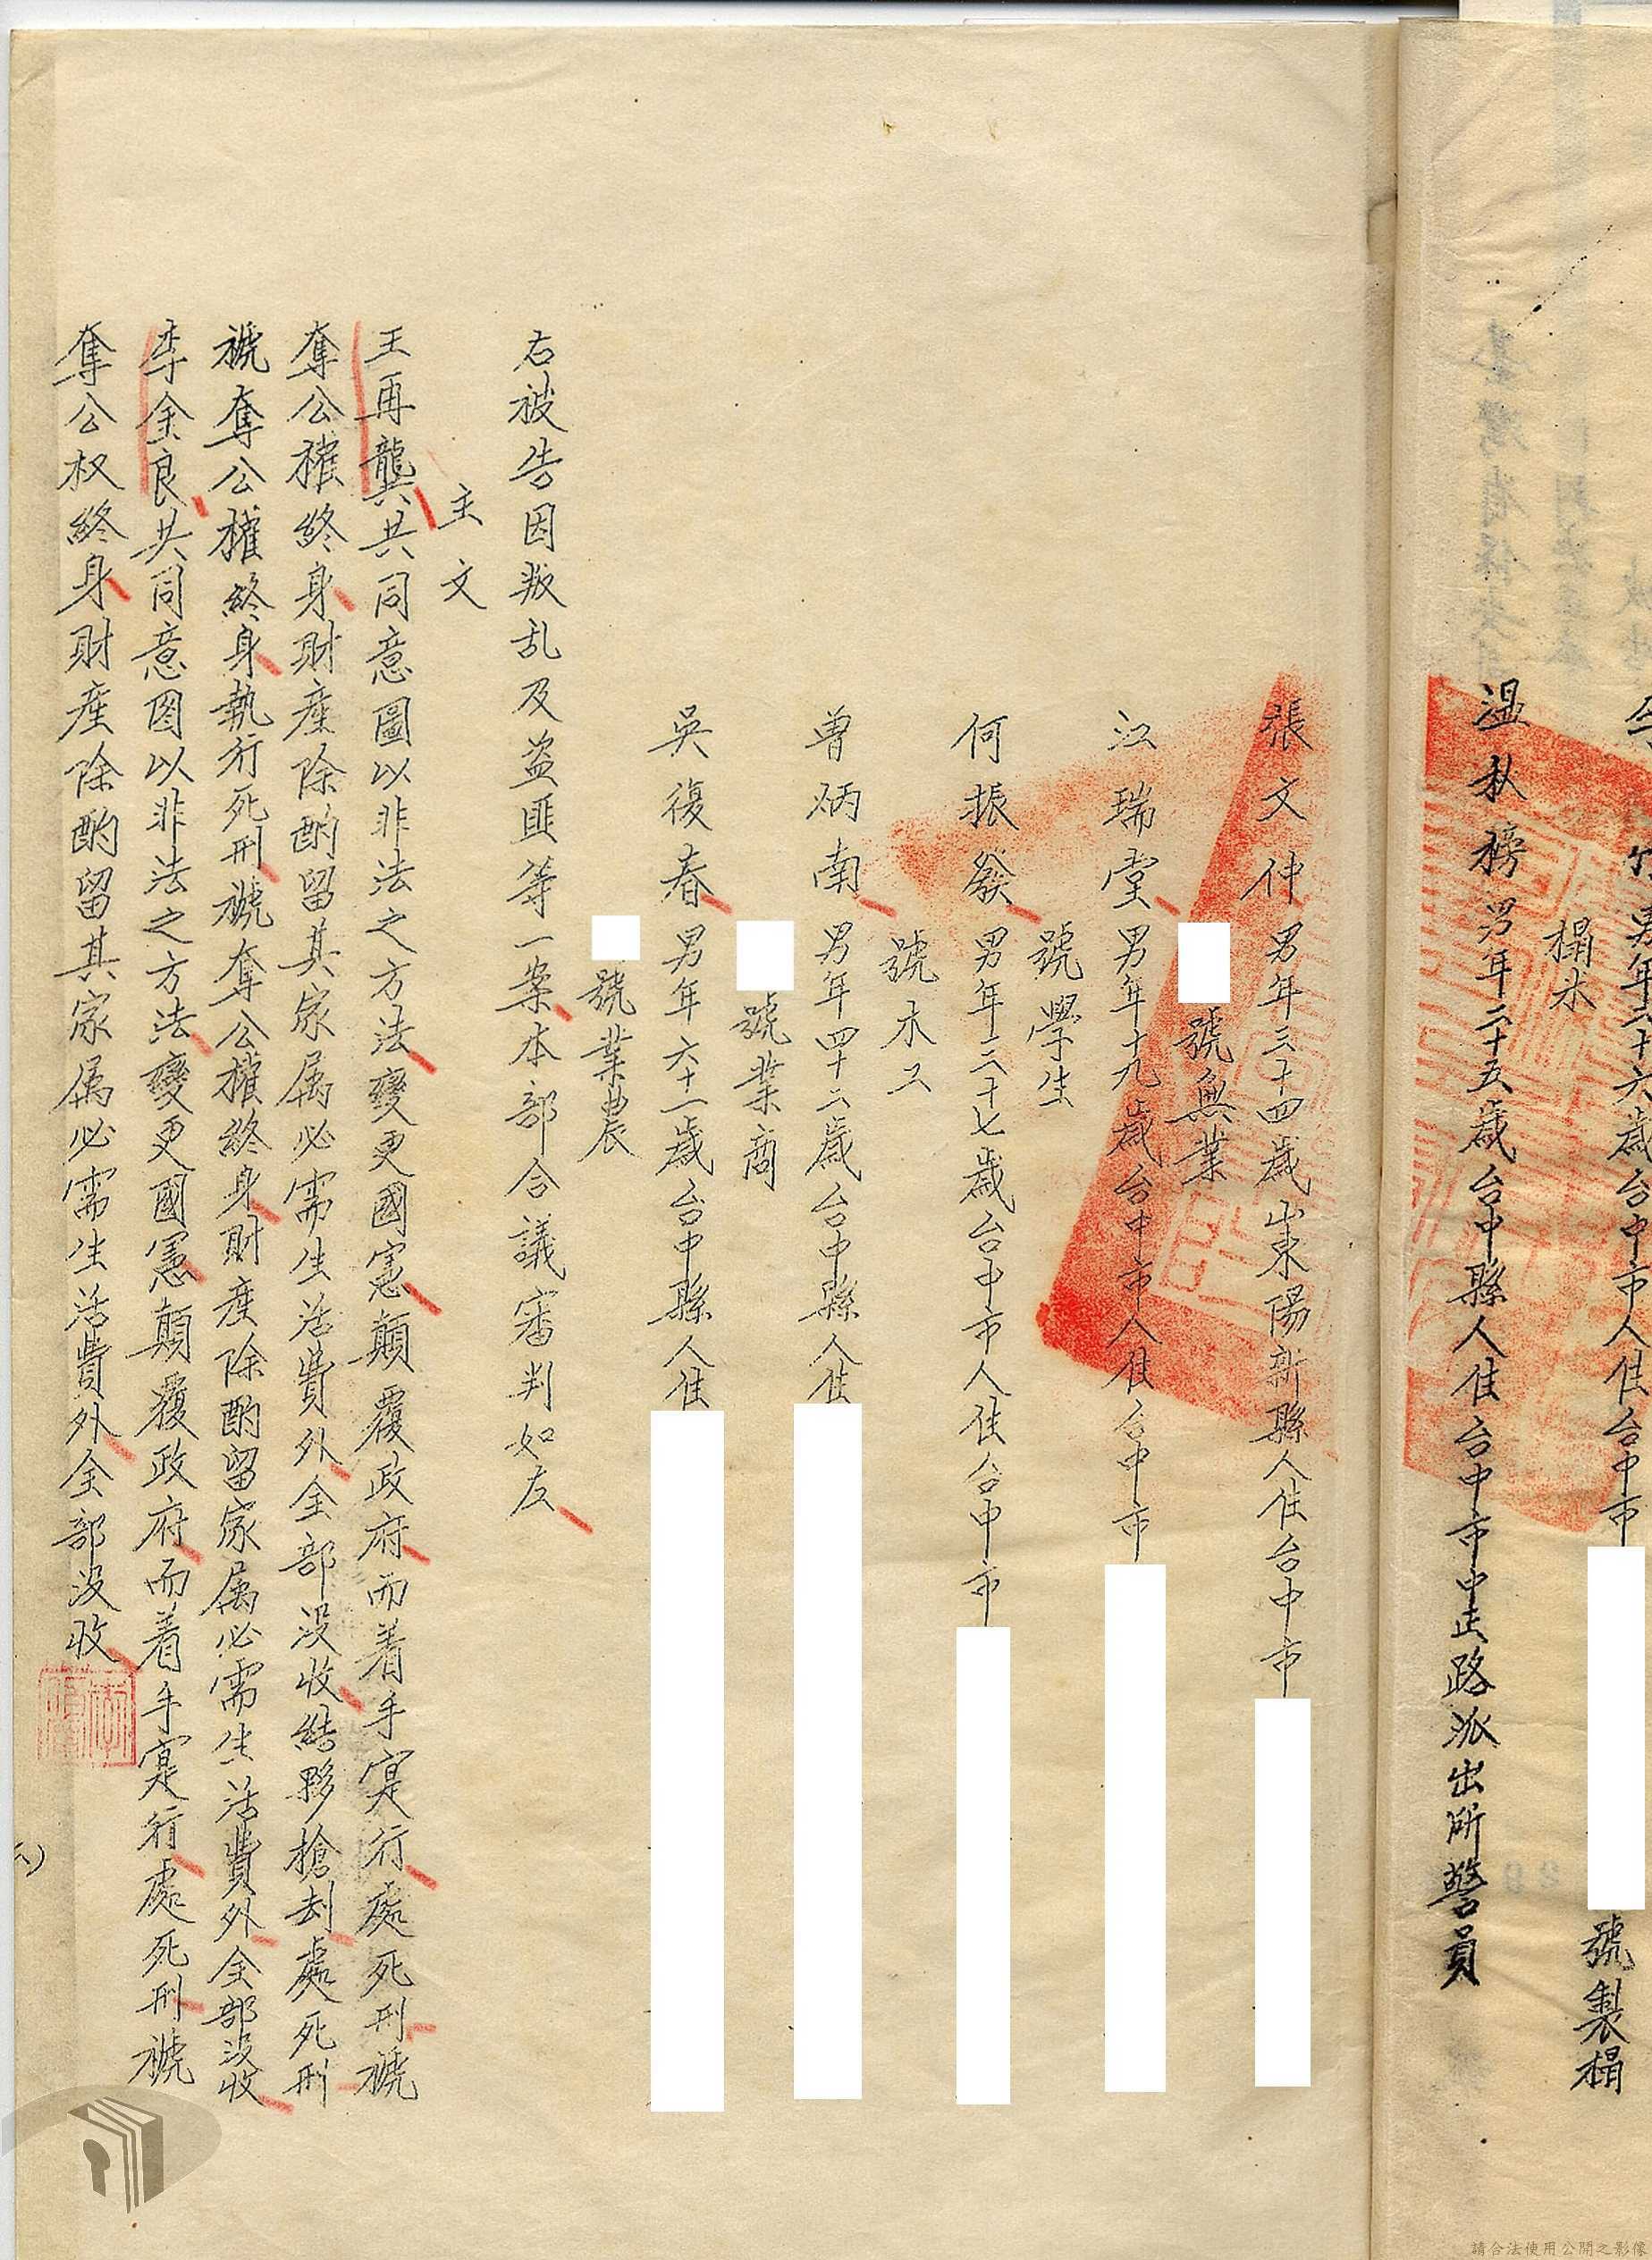 竹男年六十六歲台中市人住台中市
號製棉
棉木
溫秋榜男年二十五歲台中縣人住台中市中正路派出所警員
張文仲男年三十四歲山東陽新縣人住台中市
號無業
江瑞堂男年十九歲台中市人住台中市
號學生
何振發男年二十七歲台中市人住台中市
號木工
曾炳南男年四十二歲台中縣人住
號業商
吳復春男年六十一歲台中縣人住
號業農
右被告因叛乱及盗匪等一案本部合議審判如左
主文
王再龔共同意圖以非法之方法變更國憲顛覆政府而着手寔行處死刑褫
奪公權終身財產除酌留其家属必需生活費外全部没收結夥槍刦處死刑
褫奪公權終身執行死刑褫奪公權終身財產除酌留家属必需生活費外全部没收
李金良共同意图以非法之方法變更國憲顛覆政府而着手寔行處死刑褫
奪公权終身財產除酌留其家属必需生活費外全部没收
請合法使用公開之影像